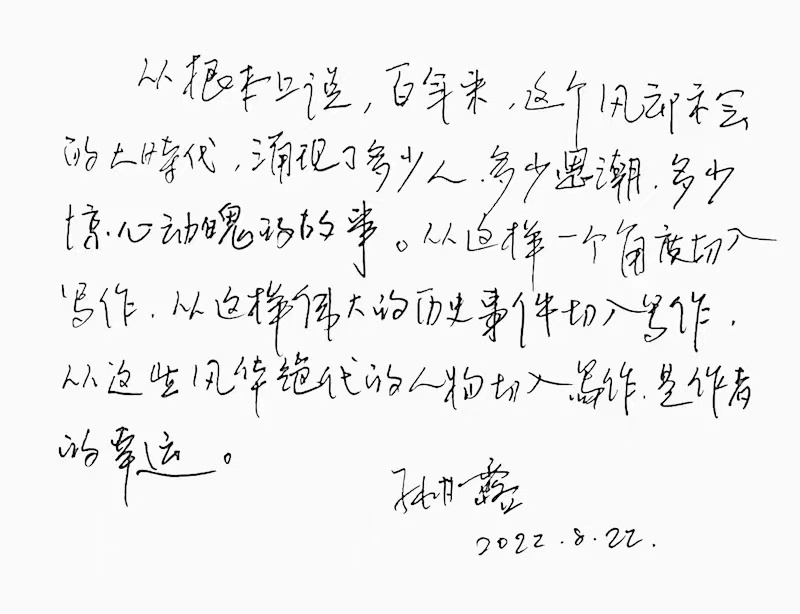 从根本上说，百年来，这个风云社会
的大時代，涌现了多少人、多少思潮、多少
惊心动魄的故事。从这样一个角度切入
写作，从这样伟大的历史事件切入写作，
从这些风华绝代的人物切入写作，是作者
的幸运。
2022.8.22.